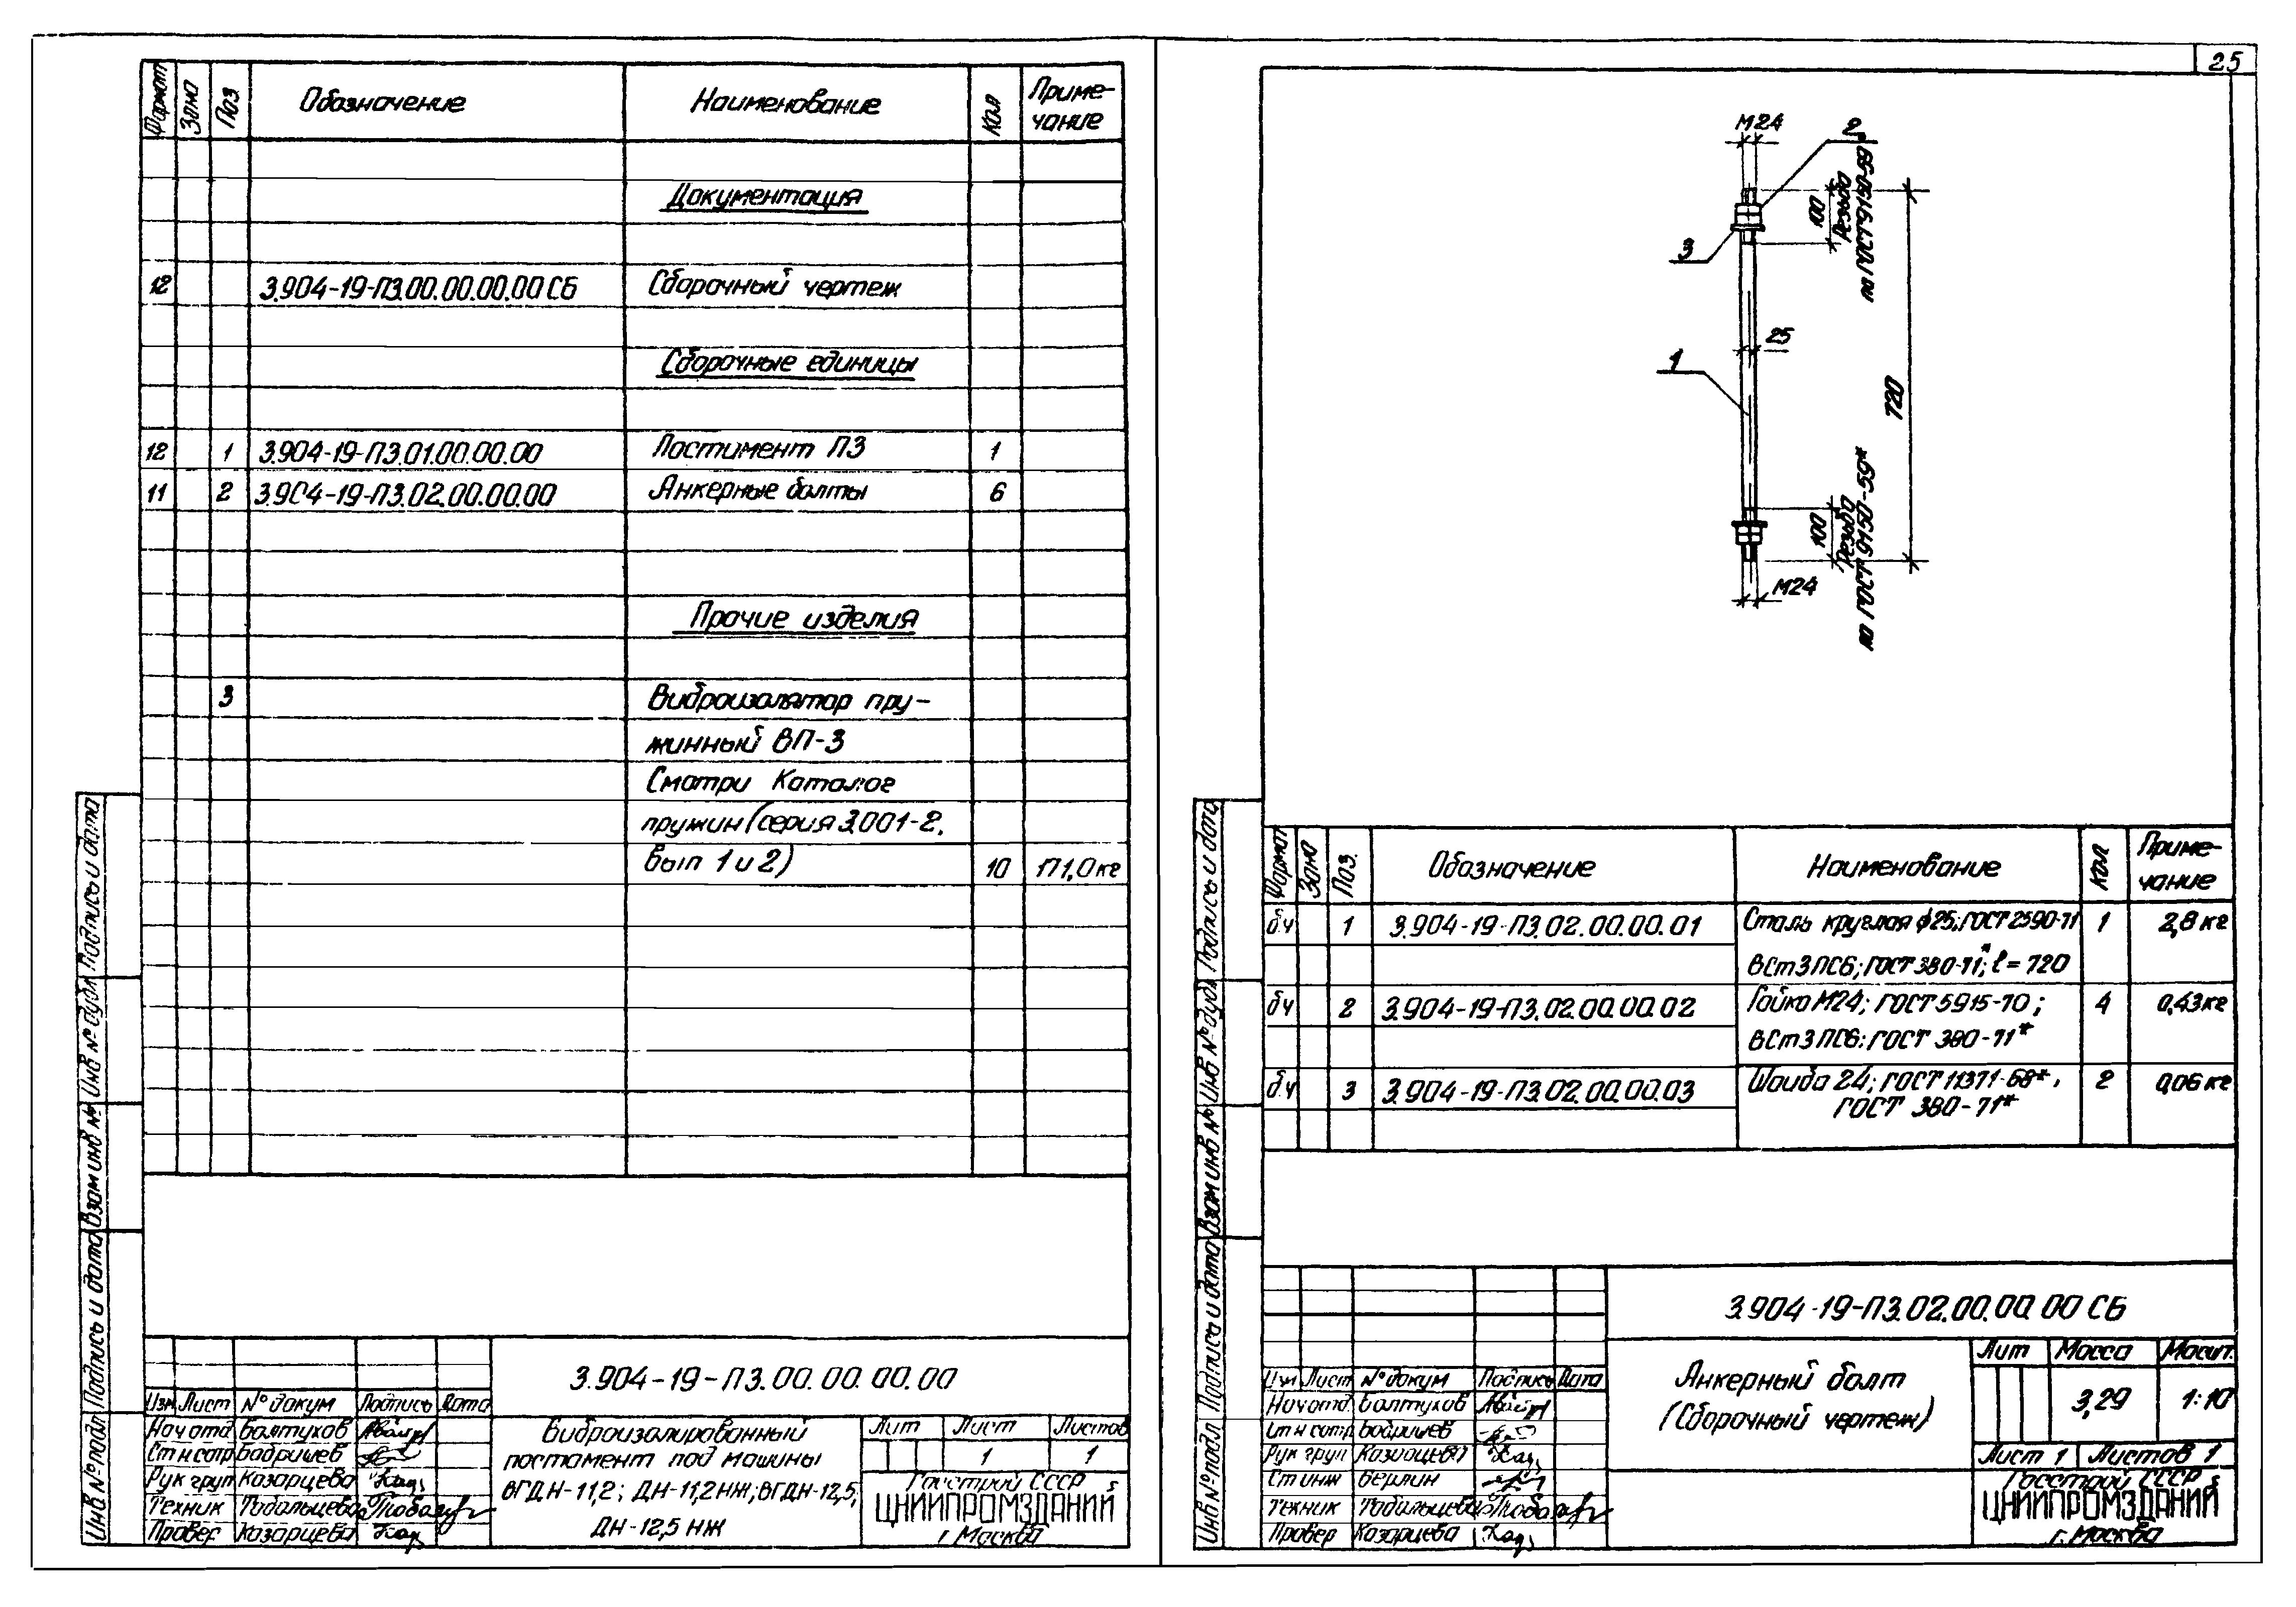 25
Формат Зона Поз Обозначение Наименование Кол Приме-
чание
Документация
12 3.904-19-П3.00.00.00.00 СБ Сборочный чертеж
Сборочные единицы
12 1 3.904-19-П3.01.00.00.00 Постимент П3 1
11 2 3.904-19-П3.02.00.00.00 Анкерные болты 6
Прочие изделия
3 Виброизолятор пру-
жинный ВП-3
Смотри Каталог
пружин (серия 3.001-2,
вып 1 и 2) 10 171,0 кг
Инв № подл Подпись и дата Взам инв № Инв № дубл Подпись и дата
3.904-19-П3.00.00.00.00
Изм Лист № докум Подпись Дата
Нач отд Болтухов
Ст н сотр Бобришев
Рук груп Казарцева
Техник Тобольцева
Провер Казарцева
Виброизолированный
постамент под машины
ВГДН-11,2; ДН-11,2 НЖ; ВГДН-12,5;
ДН-12,5 НЖ
Лит Лист Листов
1 1
Госстрой СССР
ЦНИИПРОМЗДАНИЙ
г Москва
М24
2
100
Резьба
по ГОСТ 9150-59*
3
25
1
720
100
Резьба
по ГОСТ 9150-59*
М24
Формат Зона Поз. Обозначение Наименование Кол Приме-
чание
бч 1 3.904-19-П3.02.00.00.01 Сталь круглая ф25; ГОСТ 2590-71 1 2,8 кг
ВСт3ПС6; ГОСТ 380-71*; ℓ= 720
бч 2 3.904-19-П3.02.00.00.02 Гайка М24; ГОСТ 5915-70; 4 0,43 кг
ВСт3ПС6; ГОСТ 380-71*
бч 3 3.904-19-П3.02.00.00.03 Шайба 24; ГОСТ 11371-68*, 2 0,06 кг
ГОСТ 380-71*
Инв № подл Подпись и дата Взам инв № Инв № дубл Подпись и дата
3.904-19-П3.02.00.00.00 СБ
Изм Лист № докум Подпись Дата
Нач отд Болтухов
Ст н сотр Бобришев
Рук груп Казарцева
Ст инж Берлин
Техник Тобольцева
Провер Казарцева
Анкерный болт
(Сборочный чертеж)
Лит Масса Масшт.
3,29 1:10
Лист 1 Листов 1
Госстрой СССР
ЦНИИПРОМЗДАНИЙ
г. Москва